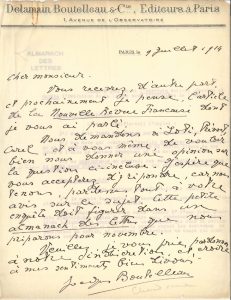 Delamain Boutelleau & Cie, Editeurs à Paris
1, AVENUE DE L'OBSERVATOIRE
ALMANACH
DES
LETTRES
PARIS le 9 Juillet 1914
Cher monsieur.
Vous recevrez, d'autre part
et prochainement je pense, l'article
de la Nouvelle Revue Française dont
je vous ai parlé.
Nous demandons à Loti,
et à vous même, de vouloir
bien nous donner une opinion sur
la question J'espère que
vous accepterez d'y répondre, car nous
tenons, par dessus tout à votre
avis sur ce sujet. Cette petite
enquête doit figurer dans un
almanach des lettres que nous
préparons pour novembre.
Veuillez, je vous prie, pardonner
à notre indiscrétion et croire
à mes sentiments bien dévoués
Jacques Boutelleau